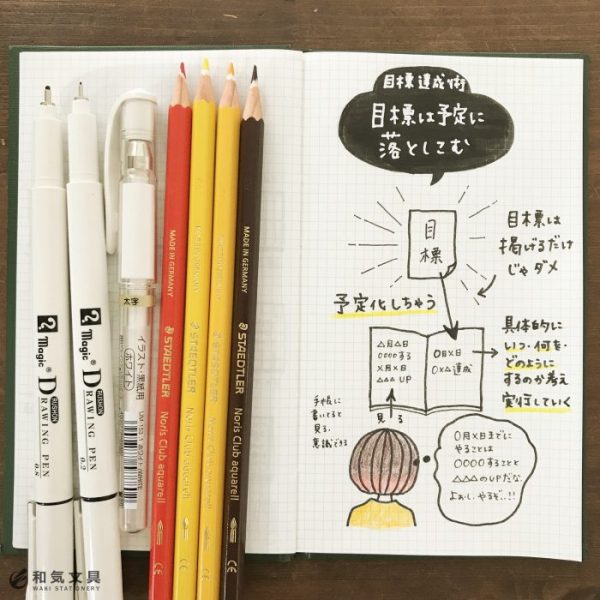 目標達成術
目標は予定に
落としこむ
目
標
目標は
掲げるだけ
じゃダメ
予定化しちゃう
△月△日
○○○○する
×月×日
△△△UP
○日×日
○×△達成
具体的に
いつ・何を・
どのように
するのか考え
実行していく
手帳に
書いてると
見る、
意識できる
見る
○月×日までに
やることは
○○○○することと
△△△のUPだな。
よぉし、やるぞ、!!
Magic®
DESIGN
DRAWING PEN
0.8
Magic®
DESIGN
DRAWING PEN
0.2
太字
イラスト・黒紙用
(ホワイト)
MADE IN GERMANY
STAEDTLER
Noris Club aquarell
CE
MADE IN GERMANY
STAEDTLER
Noris Club aquarell
CE
STAEDTLER
Noris Club aquarell
CE
MADE IN GERMANY
STAEDTLER
Noris Club aquarell
CE
和気文具
WAKI STATIONERY